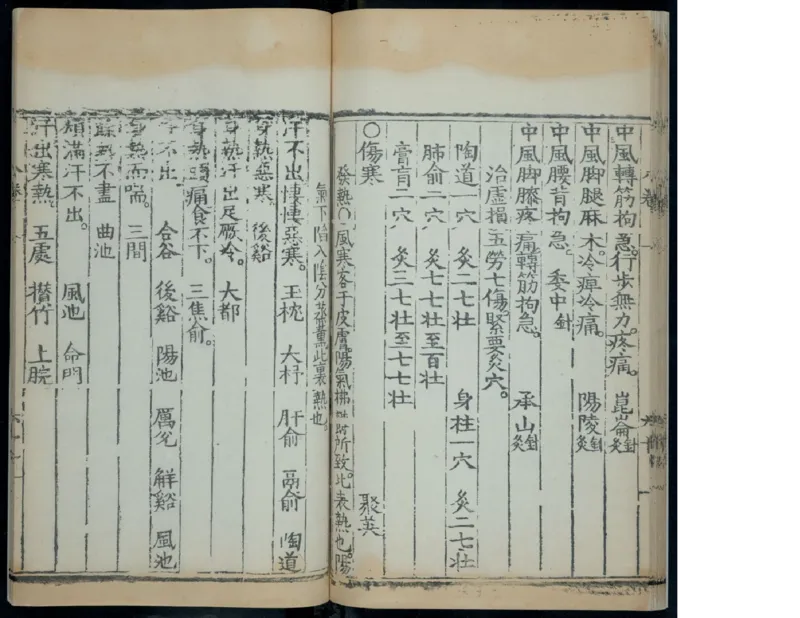 中風轉筋拘急。行步無力。疼痛。 崑崙針灸
中風脚腿麻木。冷痺冷痛。 陽陵針灸
中風腰背拘急。 委中針
中風脚膝疼痛。轉筋拘急。 承山針灸
治虛損五勞七傷。緊要灸穴。
陶道一穴 灸二七壯 身柱一穴 灸二七壯
肺俞二穴 灸七七壯至百壯
膏肓二穴 灸三七壯至七七壯
○傷寒 聚英
發熱○風寒客于皮膚。陽氣拂所致。此表熱也。陽
氣下陷入陰分蒸薰。此裏熱也。
汗不出悽悽惡寒。 玉枕 大杼 肝俞 鬲俞 陶道
身熱惡寒。 後谿
身熱汗出足厥冷。 大都
身熱頭痛食不下。 三焦俞。
汗不出。 合谷 後谿 陽池 厲兌 解谿 風池
身熱而喘。 三間
餘熱不盡 曲池
煩滿汗不出。 風池 命門
汗出寒熱。 五處 攢竹 上脘